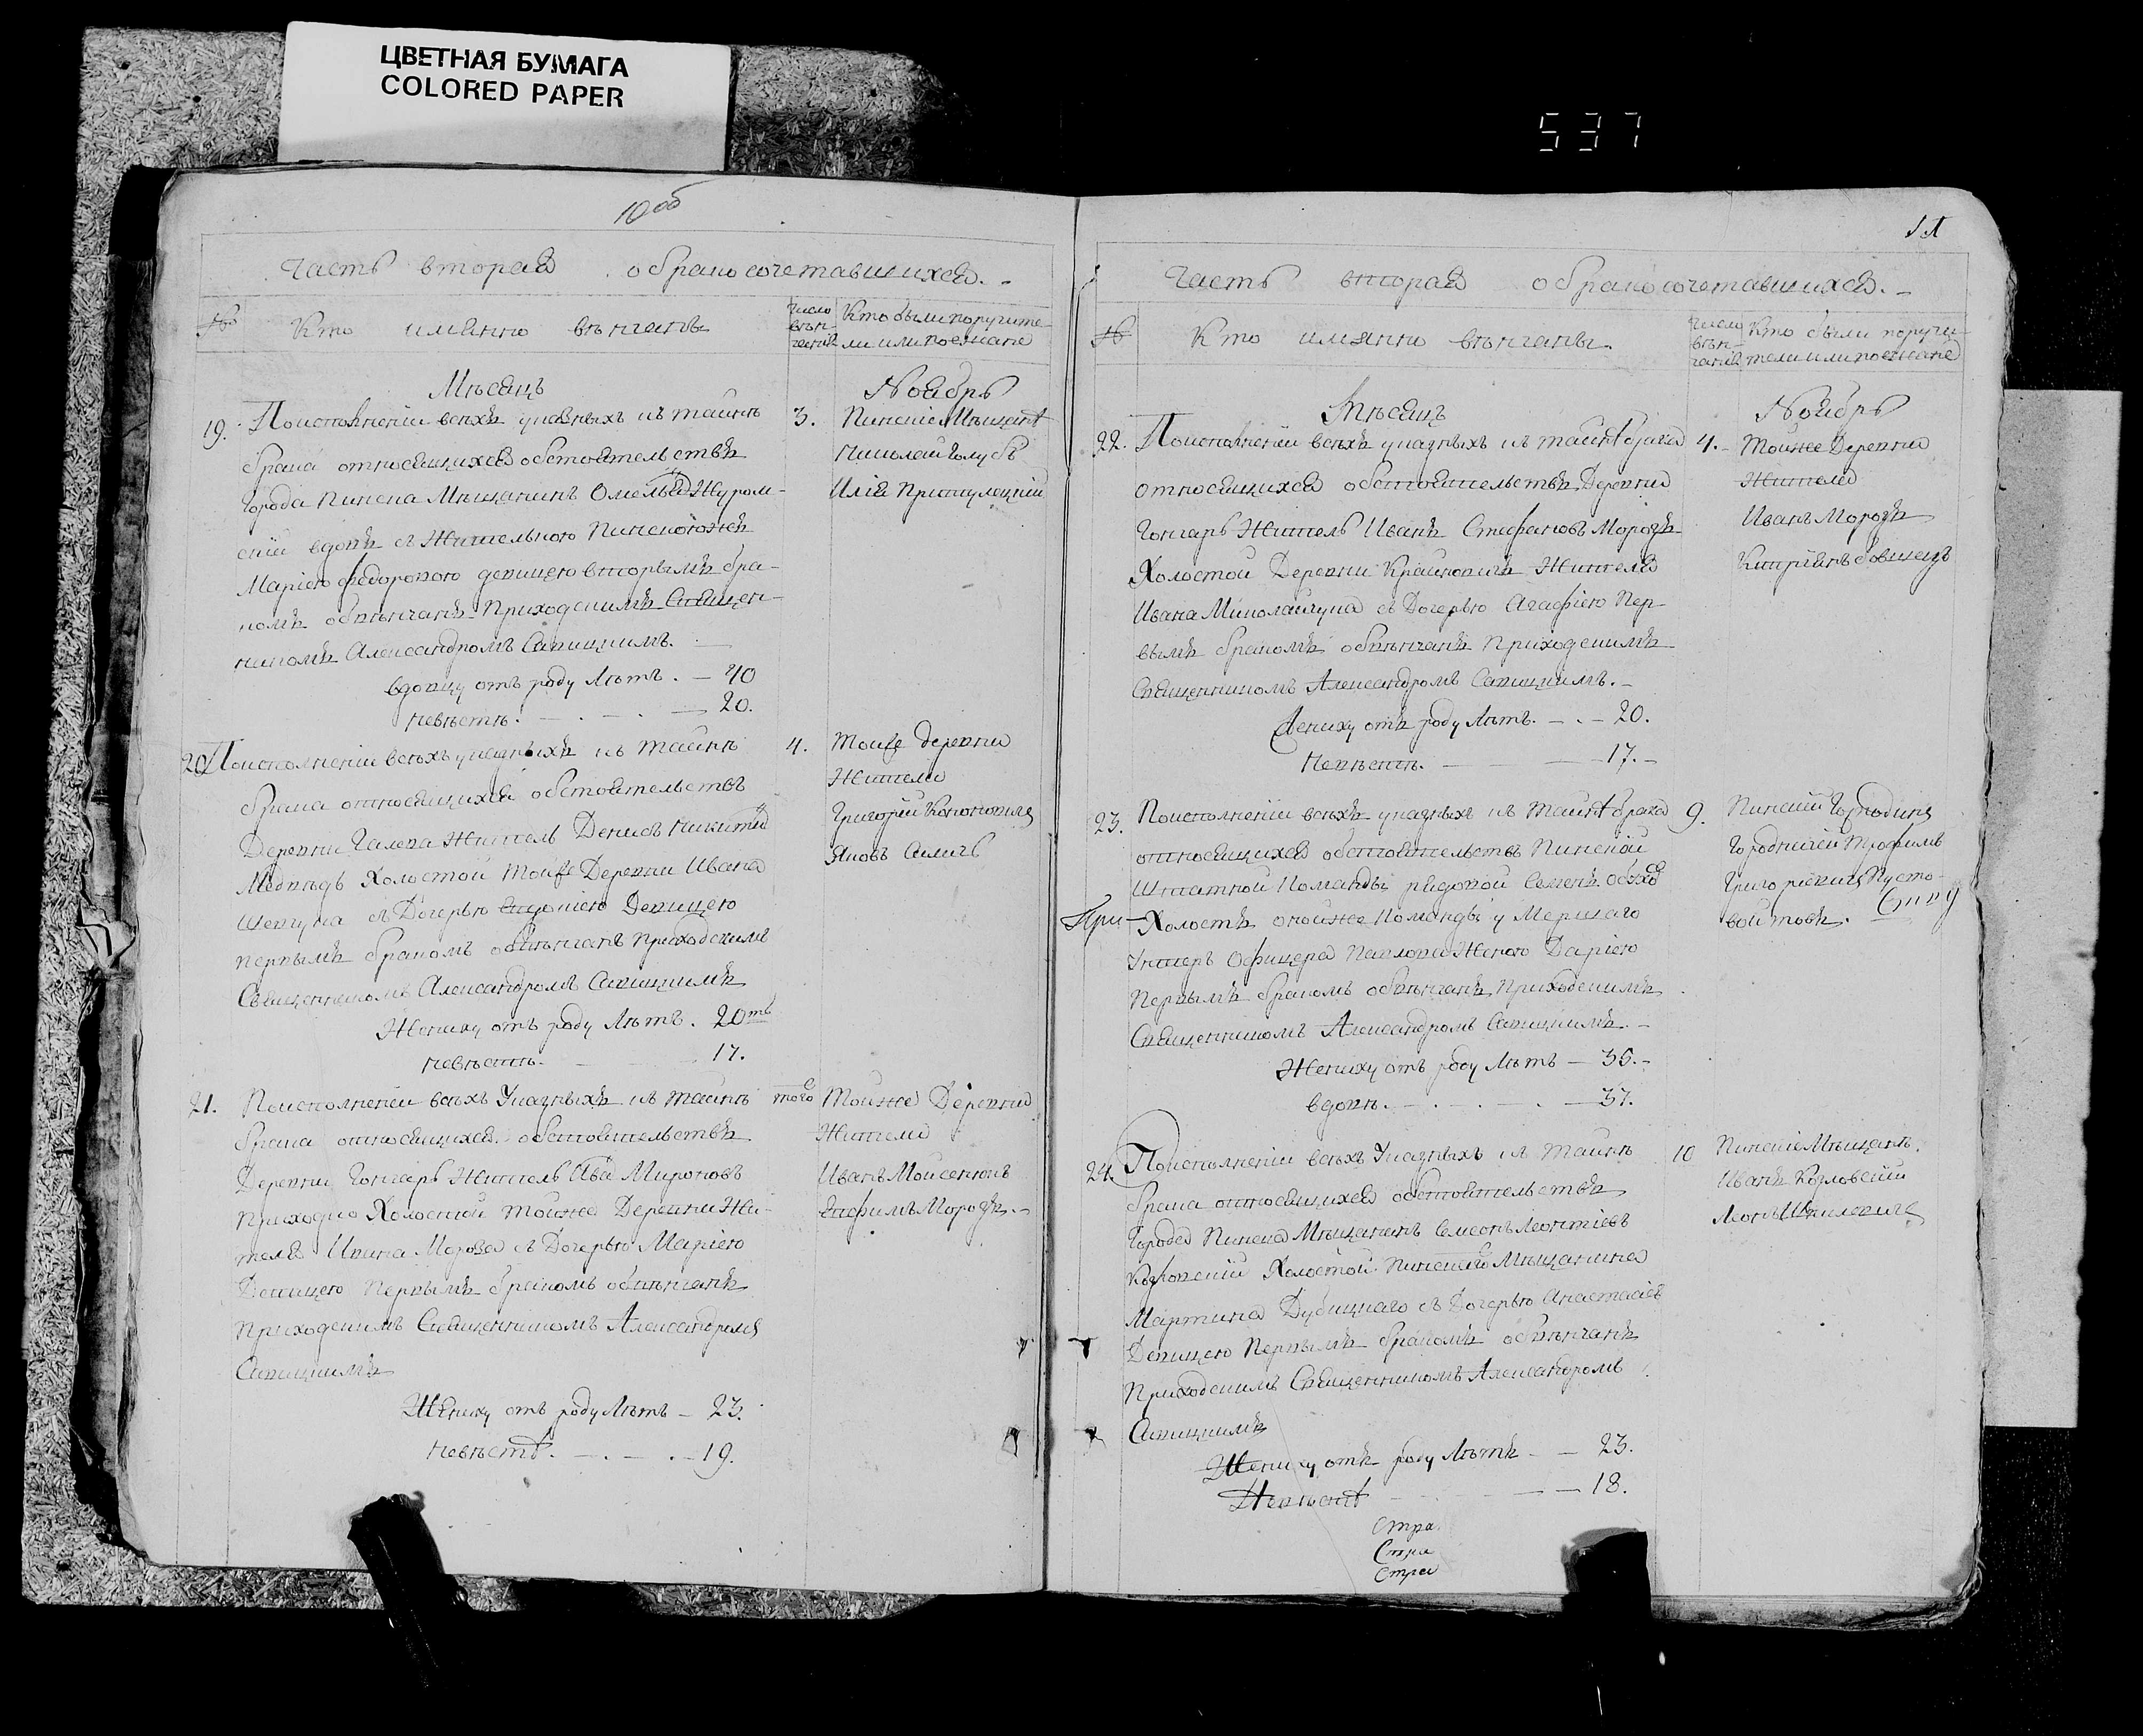 ЦВЕТНАЯ БУМАГА
COLORED PAPER
537
10об
Часть вторая о бракосочетавшихся.
№
Кто имянно вѣнчаны
Число вѣн-
чаній
Кто были поручите-
ли или поезжане
Мѣсяцъ
Ноябрь
19. Поисполненіи всѣхъ указныхъ къ таинѣ
брака относящихся обстоятельствъ
Города Пинска Мѣщанинъ
скій вдовъ съ Жителькою Пинскою
Маріею Федоровою девицею вторымъ бра-
комъ обвѣнчанъ Приходскимъ Священ-
никомъ Александромъ Савицкимъ.
вдовцу отъ роду Лѣтъ. — 40
невѣстѣ. — 20.
3.
Пинскіе Мѣщане
Николай Голубъ
Илія
20 Поисполненіи всѣхъ указныхъ къ таинѣ
брака относящихся обстоятельствъ
Деревни Галева Житель Денисъ Никитинъ
Медвѣдь Холостой тойже Деревни Ивана
съ Дочерью Девицею
первымъ бракомъ обвѣнчанъ приходскимъ
Священникомъ Александромъ Савицкимъ
Жениху отъ роду Лѣтъ. 20ть
невѣстѣ. 17.
4.
тойже деревни
Жители
Григорій Кононовичъ
Яковъ
21. Поисполненіи всѣхъ Указныхъ къ таинѣ
брака относящихся обстоятельствъ
Деревни Гончаръ Житель Мироновъ
Приходко Холостой тойже Деревни Жи-
теля Ивана Мороза съ Дочерью Маріею
Девицею Первымъ бракомъ обвѣнчанъ
Приходскимъ Священникомъ Александромъ
Савицкимъ
Жениху отъ роду Лѣтъ — 23.
невѣстѣ. — 19.
того
Тойже Деревни
Жители
Иванъ Мойсеюкъ
Морозъ.
11
Часть вторая о бракосочетавшихся.
№
Кто имянно вѣнчаны.
Число
вѣн-
чаній
Кто были поручи-
тели или поезжане
Мѣсяцъ
Ноябрь
22. Поисполненіи всѣхъ указныхъ къ таинѣ брака
относящихся обстоятельствъ Деревни
Гончаръ Житель Иванъ Стефановъ Морозъ
Холостой Деревни Жителя
Ивана съ Дочерью Агафіею Пер-
вымъ бракомъ обвѣнчанъ Приходскимъ
Священникомъ Александромъ Савицкимъ.
Жениху отъ роду Лѣтъ. — 20.
Невѣстѣ. — 17.
4.
Тойже Деревни
Жители
Иванъ Морозъ
Кипріянъ
23. Поисполненіи всѣхъ указныхъ къ таинѣ брака
относящихся обстоятельствъ Пинской
Штатной Команды рядовой Семенъ
Холостъ оной же Команды умершаго
Унтеръ Офицера Павлова Женою Даріею
Первымъ бракомъ обвѣнчанъ Приходскимъ
Священникомъ Александромъ Савицкимъ.
Жениху отъ роду Лѣтъ — 35.
вдовѣ. — 37.
9.
Пинскій
Городничей Трофимъ
Григорьевичъ Пусто-
войтовъ.
24. Поисполненіи всѣхъ Указныхъ къ таинѣ
брака относящихся обстоятельствъ
Города Пинска Мѣщанинъ Симеонъ Леонтіевъ
Козловскій Холостой Пинскаго Мѣщанина
Мартина Дубицкаго съ Дочерью Анастасіею
Девицею Первымъ бракомъ обвѣнчанъ
Приходскимъ Священникомъ Александромъ
Савицкимъ
Жениху отъ роду Лѣтъ — 23.
Невѣстѣ — 18.
10
Пинскіе Мѣщане.
Иванъ Козловскій
Леонъ
Стра
Стра
Стра